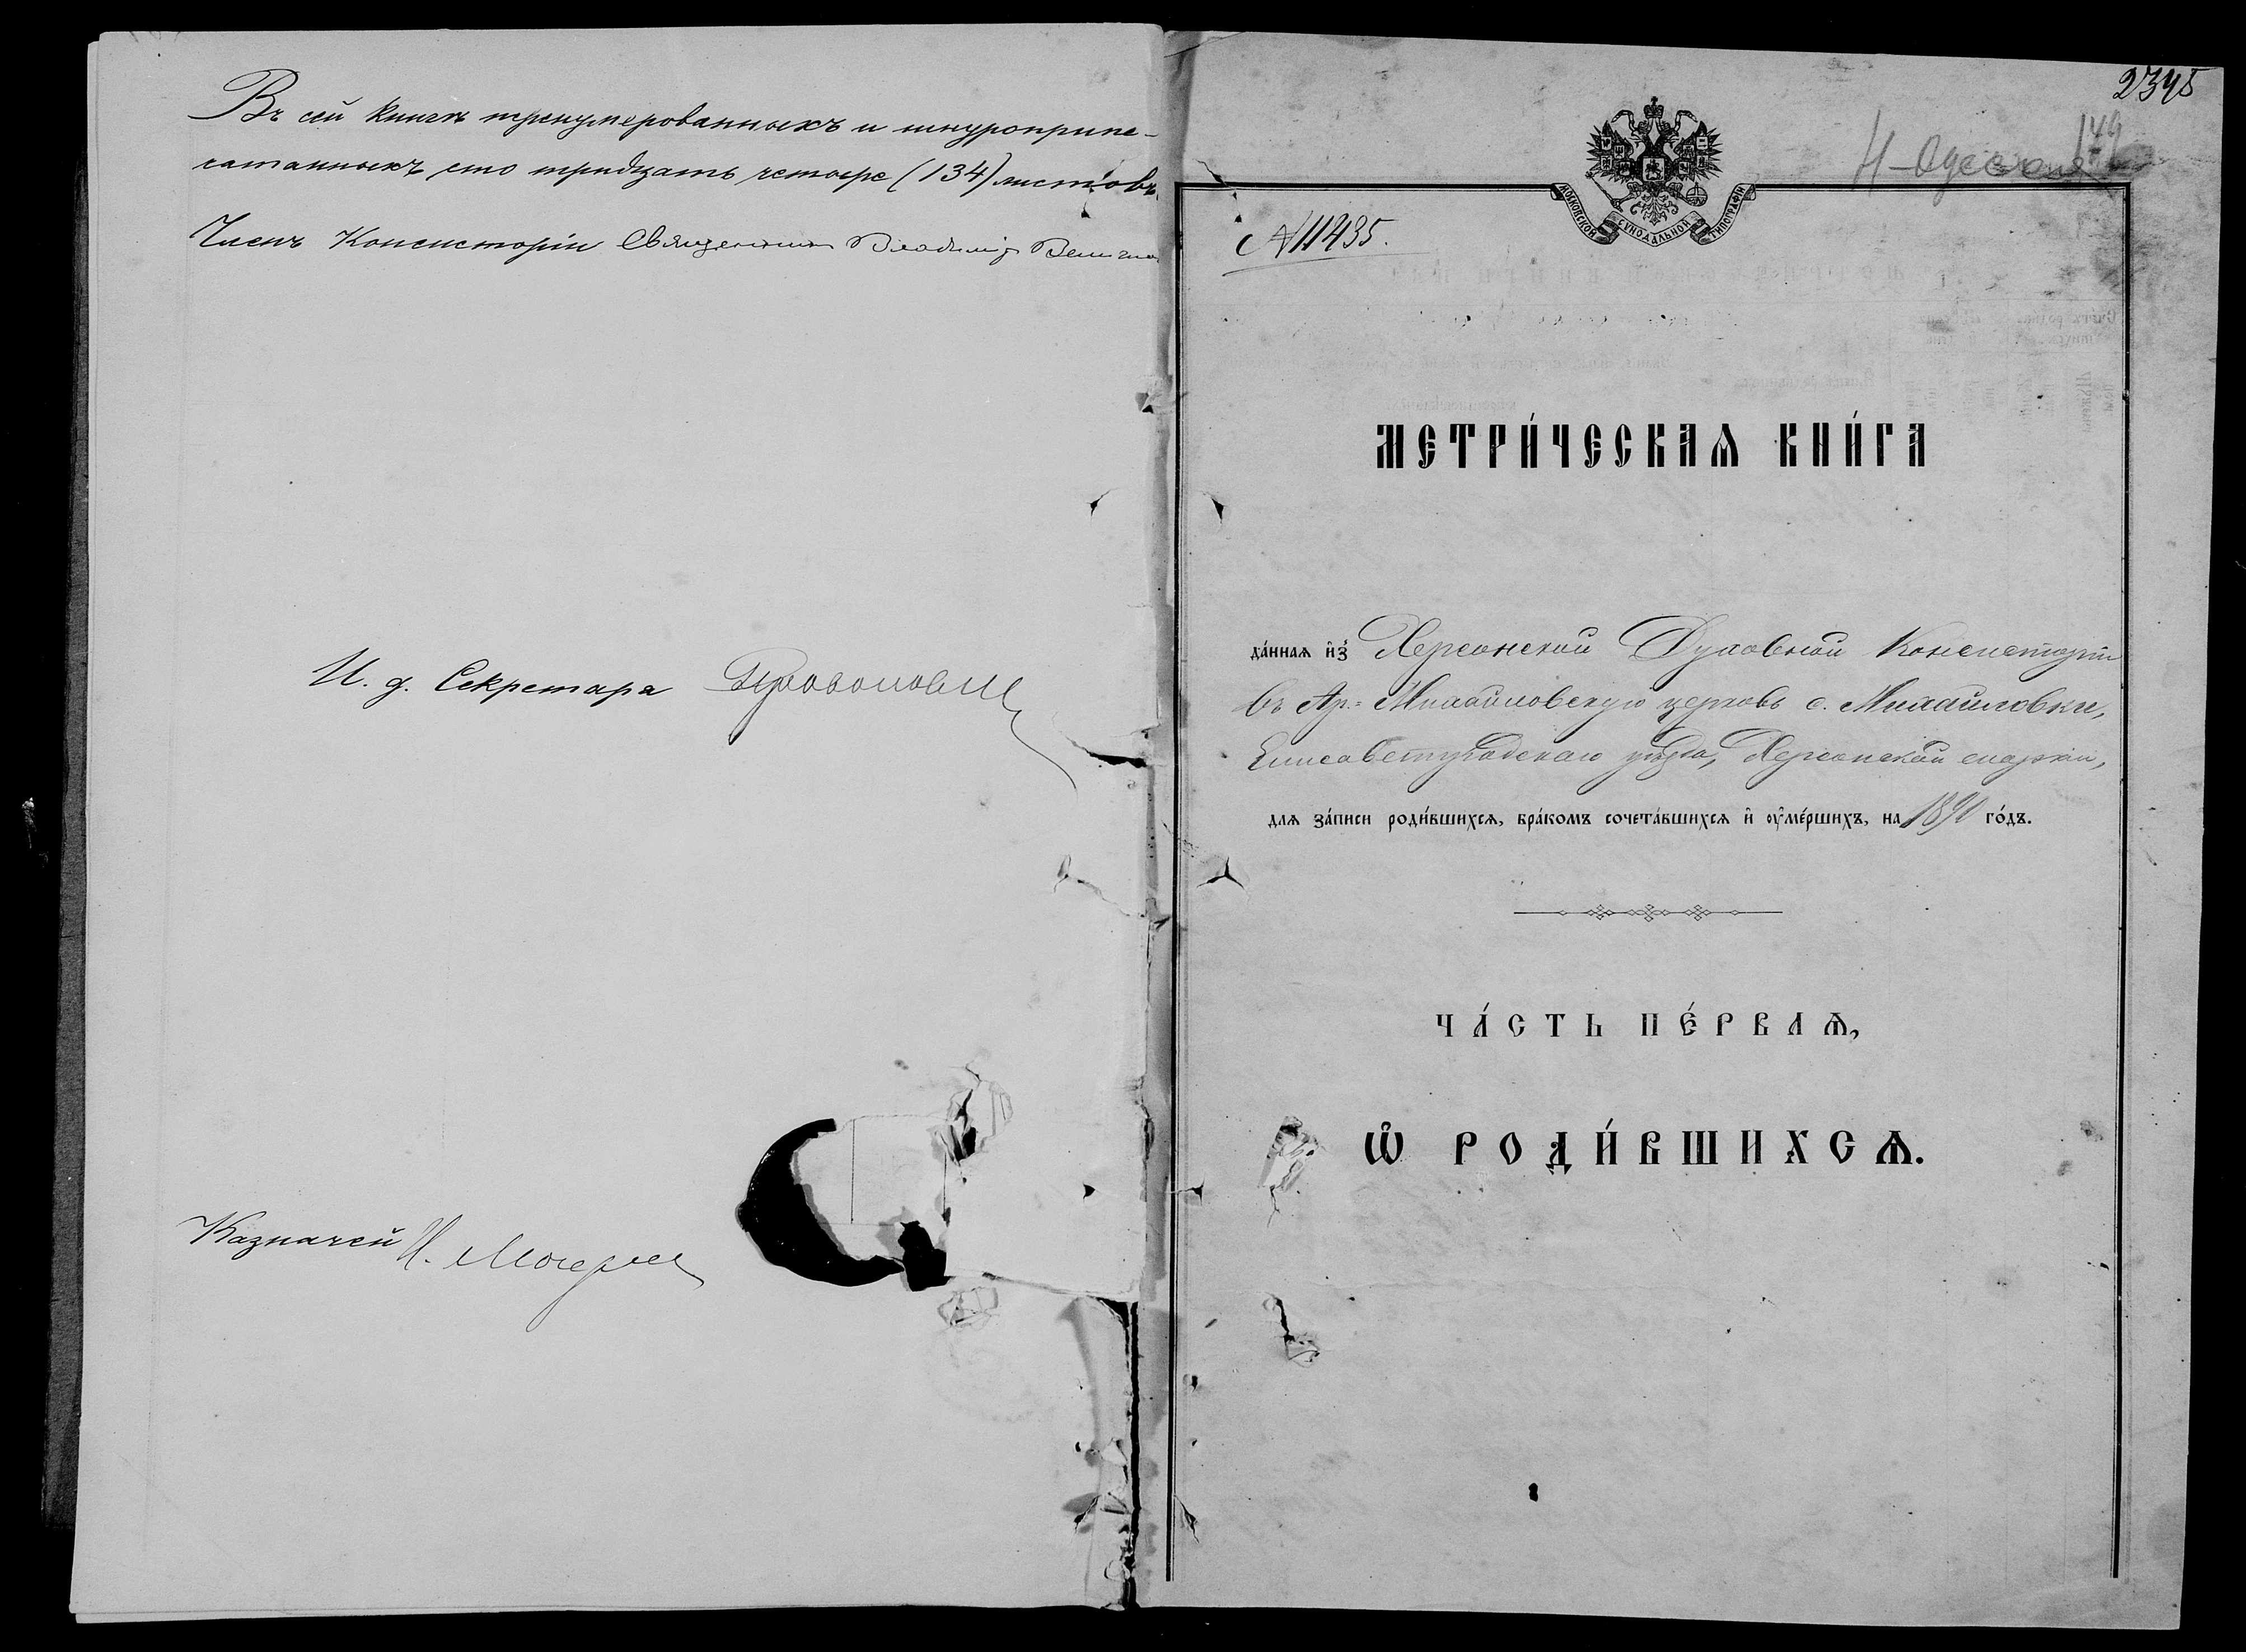 Въ сей книгѣ пренумерованныхъ и шнуроприпе-
чатанныхъ сто тридцать четыре (134) листовъ.
Членъ Консисторіи Священникъ Владиміръ
И. д. Секретаря
Казначей И.
2345
149
МОСКОВСКОЙ СѴНОДАЛЬНОЙ ТИПОГРАФІИ
№11435.
МЕТРИ́ЧЕСКАѦ КНИ́ГА
да́ннаѧ и҆з̾ Херсонской Духовной Консисторіи
въ Ар.= Михайловскую церковь с. Михайловки,
Елисаветградскаго уѣзда, Херсонской епархіи,
длѧ за́писи роди́вшихсѧ, бра́комъ сочета́вшихсѧ и҆ ᲂу҆ме́ршихъ, на 1891 го́дъ.
ЧА́СТЬ ПЕ́РВАѦ,
Ѡ҆ РОДИ́ВШИХСѦ.